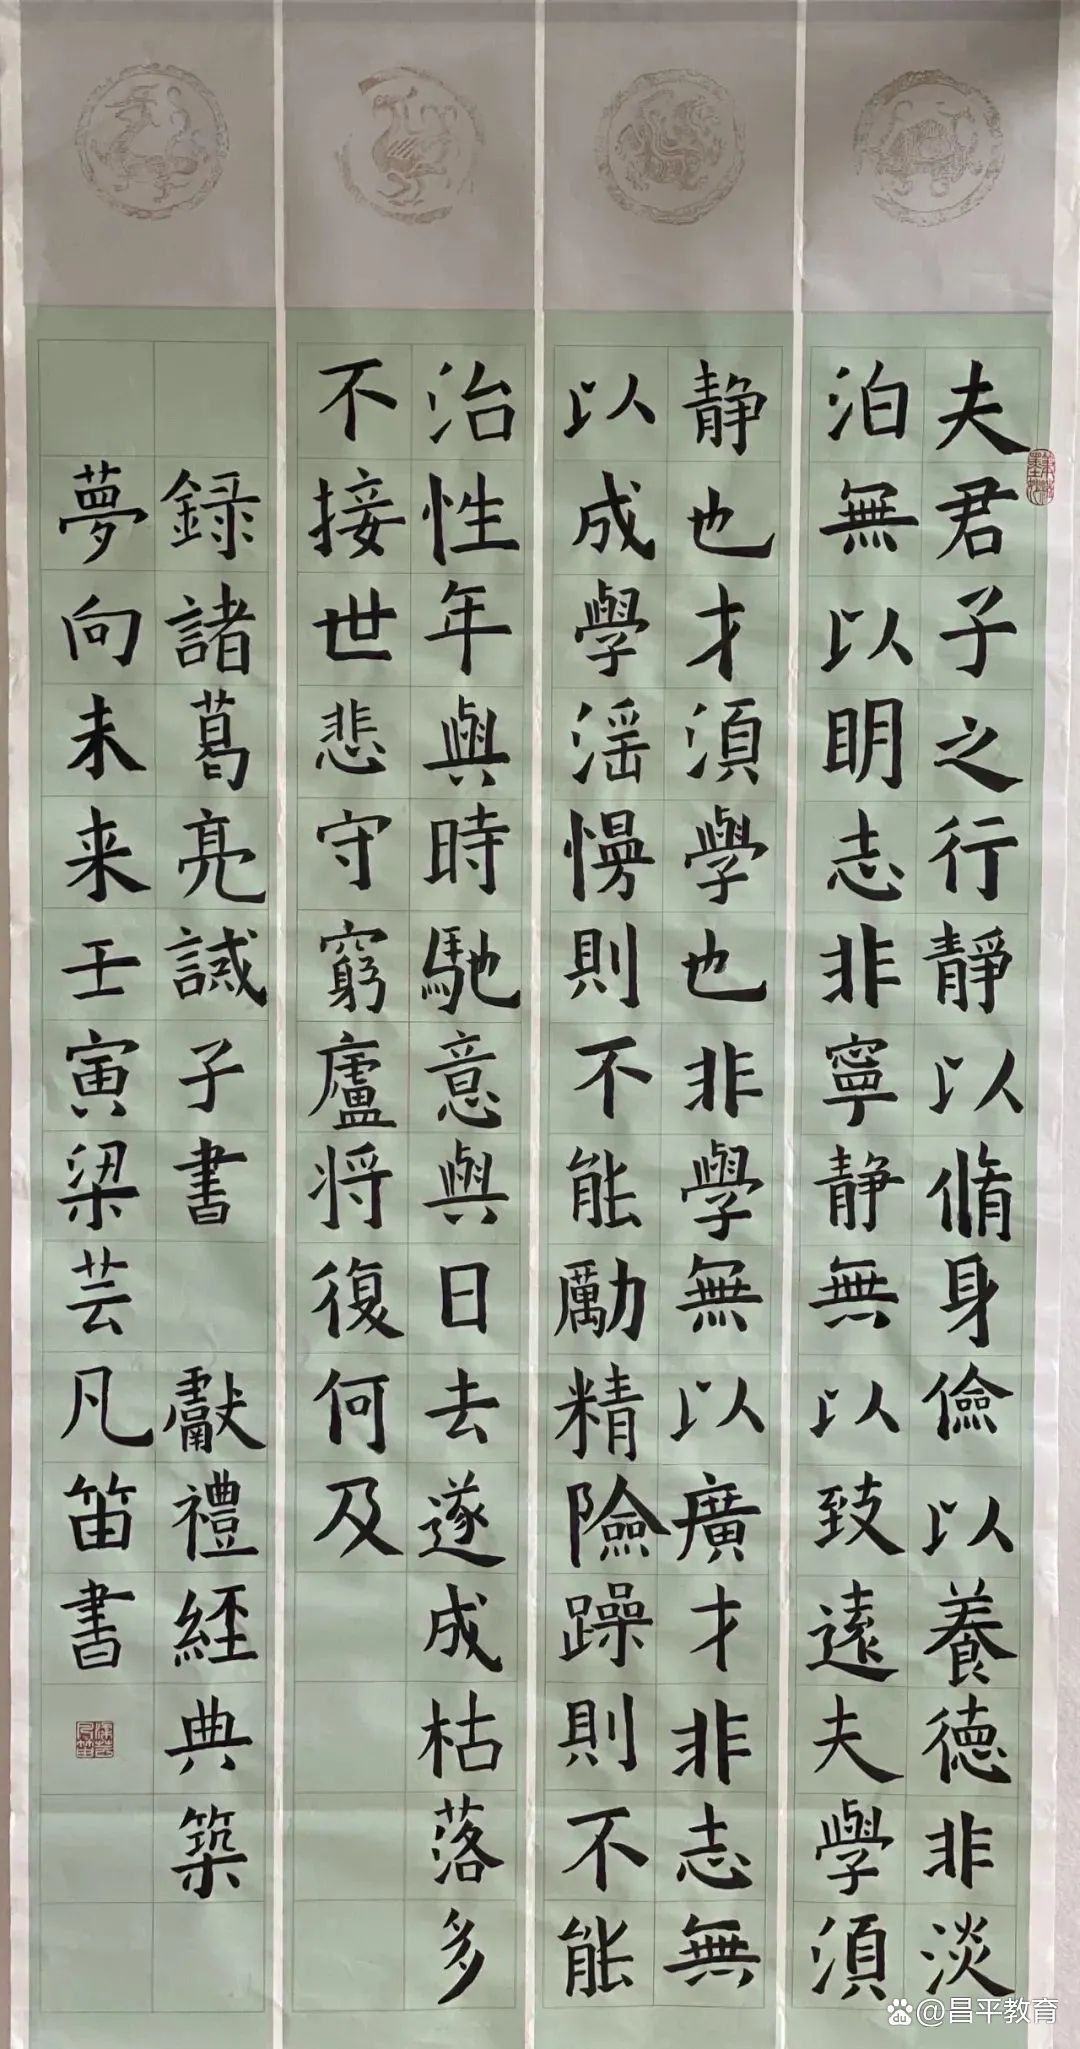 夫君子之行靜以脩身儉以養德非淡
泊無以明志非寧静無以致遠夫學須
静也才須學也非學無以廣才非志無
以成學滛慢則不能勵精險躁則不能
治性年與時馳意與日去遂成枯落多
不接世悲守窮廬将復何及
録諸葛亮誡子書 獻禮經典築
夢向未来壬寅梁芸凡笛書
@昌平教育